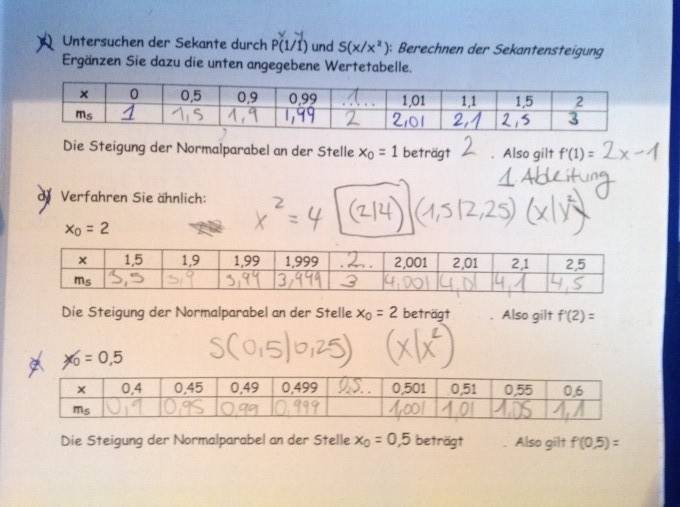 Untersuchen der Sekante durch P(1/1) und S(x/x²): Berechnen der Sekantensteigung
Ergänzen Sie dazu die unten angegebene Wertetabelle.
x 0 0,5 0,9 0,99 ..1.. 1,01 1,1 1,5 2
ms 1 1,5 1,9 1,99 2 2,01 2,1 2,5 3
Die Steigung der Normalparabel an der Stelle x0 = 1 beträgt 2 . Also gilt f'(1) = 2x-1
1. Ableitung
d) Verfahren Sie ähnlich:
x² = 4 (2/4) (1,5/2,25) (x/x²)
x0 = 2
x 1,5 1,9 1,99 1,999 ..2.. 2,001 2,01 2,1 2,5
ms 3,5 3,9 3,99 3,999 3 4,001 4,01 4,1 4,5
Die Steigung der Normalparabel an der Stelle x0 = 2 beträgt . Also gilt f'(2) =
e) x0 = 0,5 S(0,5/0,25) (x/x²)
x 0,4 0,45 0,49 0,499 0,5.. 0,501 0,51 0,55 0,6
ms 0,9 0,95 0,99 0,999 1,001 1,01 1,05 1,1
Die Steigung der Normalparabel an der Stelle x0 = 0,5 beträgt . Also gilt f'(0,5) =